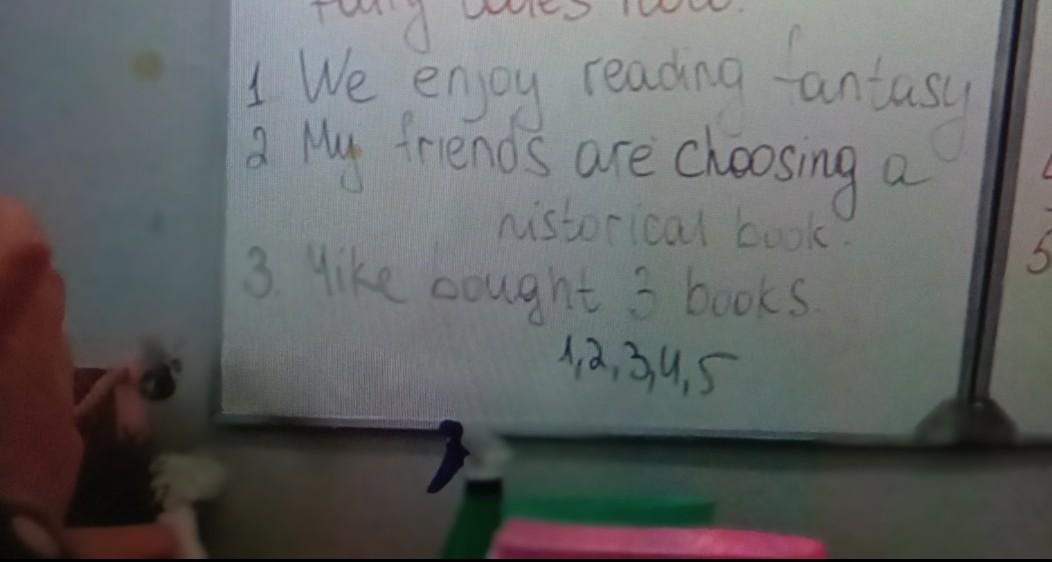 now.
1 We enjoy reading fantasy
2 My friends are choosing a
historical book.
3. Mike bought 3 books.
1,2,3,4,5
5